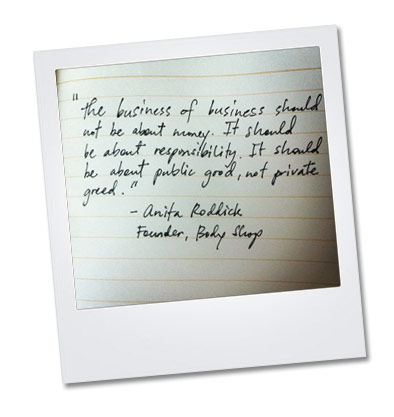 "the business of business should
not be about money. It should
be about responsibility. It should
be about public good, not private
greed."
- Anita Roddick
Founder, Body Shop